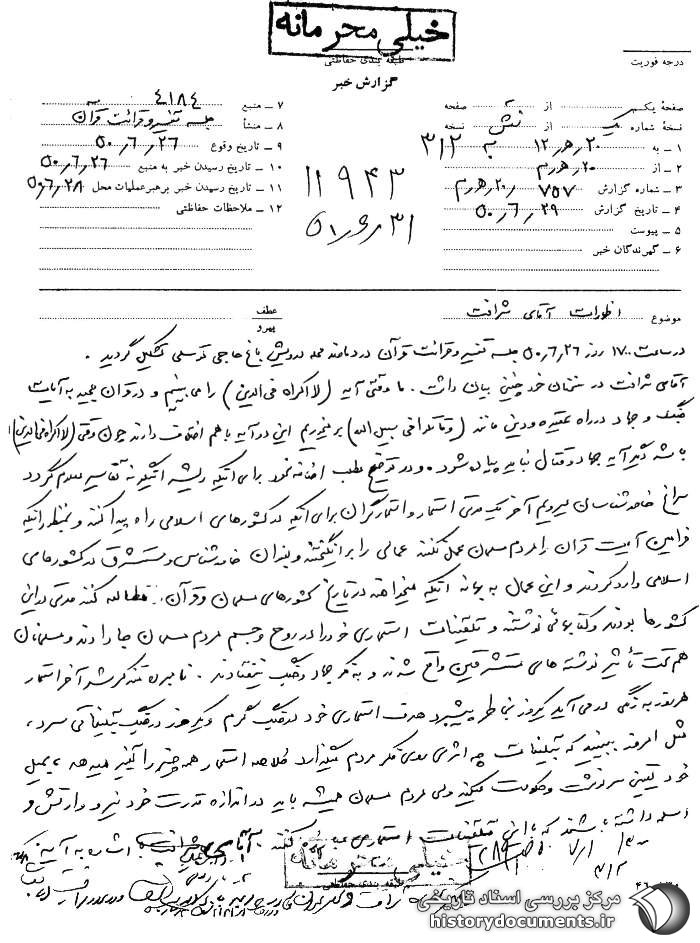 خیلی محرمانه
طبقه بندی حفاظتی
گزارش خبر
درجه فوریت
صفحه یک از ۲ صفحه
نسخه شماره یک از شش نسخه
۱ – به ۲۰ هـ ۱۲ به ۳۱۲
۲ – از ۲۰ هـ م
۳ – شماره گزارش ۷۵۷ / ۲۰ هـ م
۴ – تاریخ گزارش ۵۰/۶/۲۹
۵ – پیوست
۶ – گیرندگان خبر
۷ – منبع ۴۱۸۴
۸ – منشأ جلسه تفسیر و قرائت قرآن
۹ – تاریخ وقوع ۵۰/۶/۲۶
۱۰ – تاریخ رسیدن خبر به منبع ۵۰/۶/۲۶
۱۱ – تاریخ رسیدن خبر برهبر عملیات محل ۵۰/۶/۲۸
۱۲ – ملاحظات حفاظتی
۱۱۹۴۳
موضوع اظهارات آقای شرافت
عطف
پیرو
در ساعت ۱۷۰۰ روز ۵۰/۶/۲۶ جلسه تفسیر و قرائت قرآن در دامنه محله درویش باغ حاجی توسلی تشکیل گردید .
آقای شرافت در سخنان خود چنین بیان داشت . ما وقتی آیه (لااکراه فی الدین) را می بینیم و در قرآن مجید به آیات
جنگ و جهاد در راه عقیده و دین مانند (وقاتلوا فی سبیل الله) بر میخوریم این دو آیه با هم اختلاف دارند چون وقتی (لااکراه فی الدین)
باشد دیگر آیه جهاد و قتال نباید پیاده شود . و در توضیح مطلب اضافه نمود برای اینکه ریشه اینگونه تفاسیر معلوم گردد
سراغ خاورشناسان میرویم آخر یک مدتی استعمار و استعمارگران برای اینکه در کشورهای اسلامی راه پیدا کنند و بخاطر اینکه
فرامین آیت قرآن را مردم مسلمان عمل نکنند عمالی را برانگیختند و بعنوان خاورشناس و مستشرق در کشورهای
اسلامی وارد کردند و این عمال به بهانه اینکه میخواهند در تاریخ کشورهای مسلمان و قرآن مطالعه کنند مدتی در این
کشورها بودند و کتابهائی نوشتند و تلقینات استعماری خود را در روح و جسم مردم مسلمان جا دادند و مسلمانان
هم تحت تأثیر نوشته های مستشرقین واقع شدند و به فکر جهاد و جنگ نیفتادند . نامبرده متذکر شد آخر استعمار
هر روز به رنگی در می آید یکروز بخاطر پیشبرد هدف استعماری خود در جنگ گرم و یکروز در جنگ تبلیغاتی سرد ،
مثل امروز ببینید که تبلیغات چه اثری روی فکر مردم میگذارد خلاصه استعمار همه چیز را تغییر میدهد ، بمیل
خود تعیین سرنوشت و حکومت میکند ولی مردم مسلمان همیشه باید در اندازه قدرت خود نیرو و ارتش و
اسلحه داشته باشند که با این تلقینات استعماری مبارزه کنند .
خیلی محرمانه
طبقه بندی حفاظتی
مرکز بررسی اسناد تاریخی
historydocuments.ir